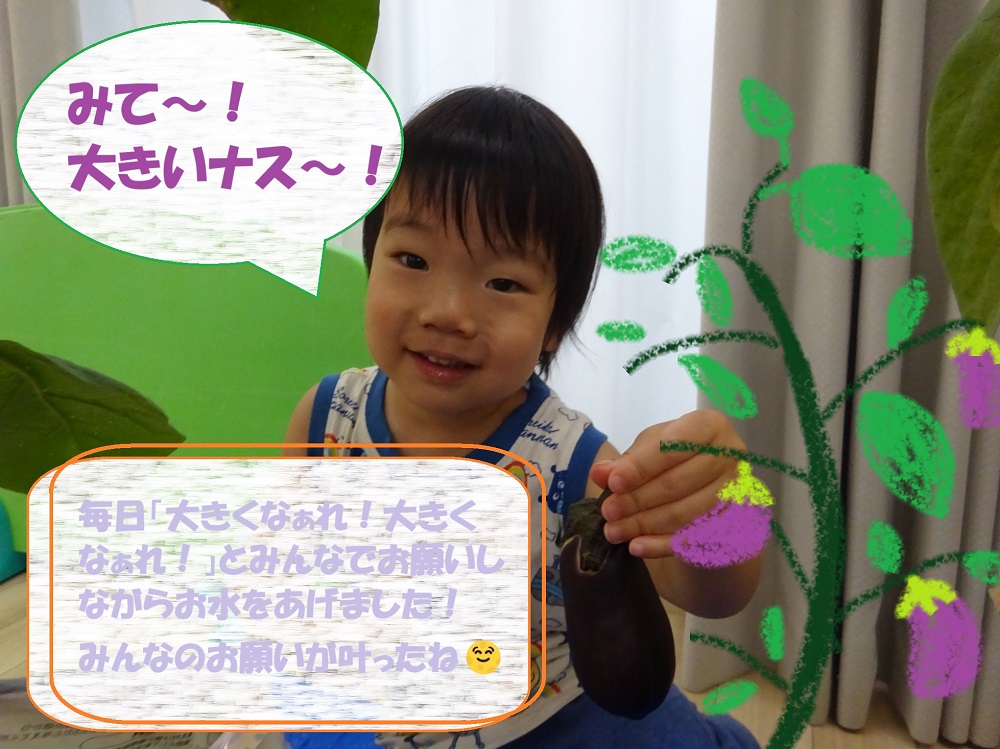 みて～！
大きいナス～！
毎日「大きくなぁれ！大きく
なぁれ！」とみんなでお願いし
ながらお水をあげました！
みんなのお願いが叶ったね😊